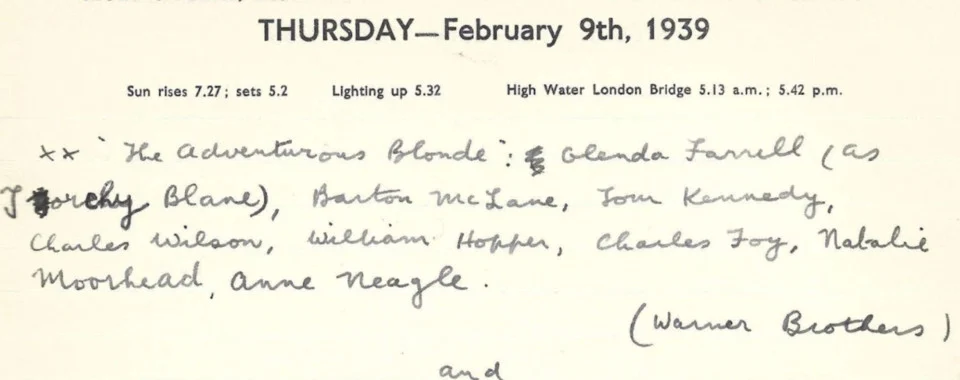 THURSDAY—February 9th, 1939
Sun rises 7.27; sets 5.2 Lighting up 5.32 High Water London Bridge 5.13 a.m.; 5.42 p.m.
xx 'The Adventurous Blonde': Glenda Farrell (as
Torchy Blane), Barton McLane, Tom Kennedy,
Charles Wilson, William Hopper, Charles Foy, Natalie
Moorhead, Anne Neagle.
(Warner Brothers)
and